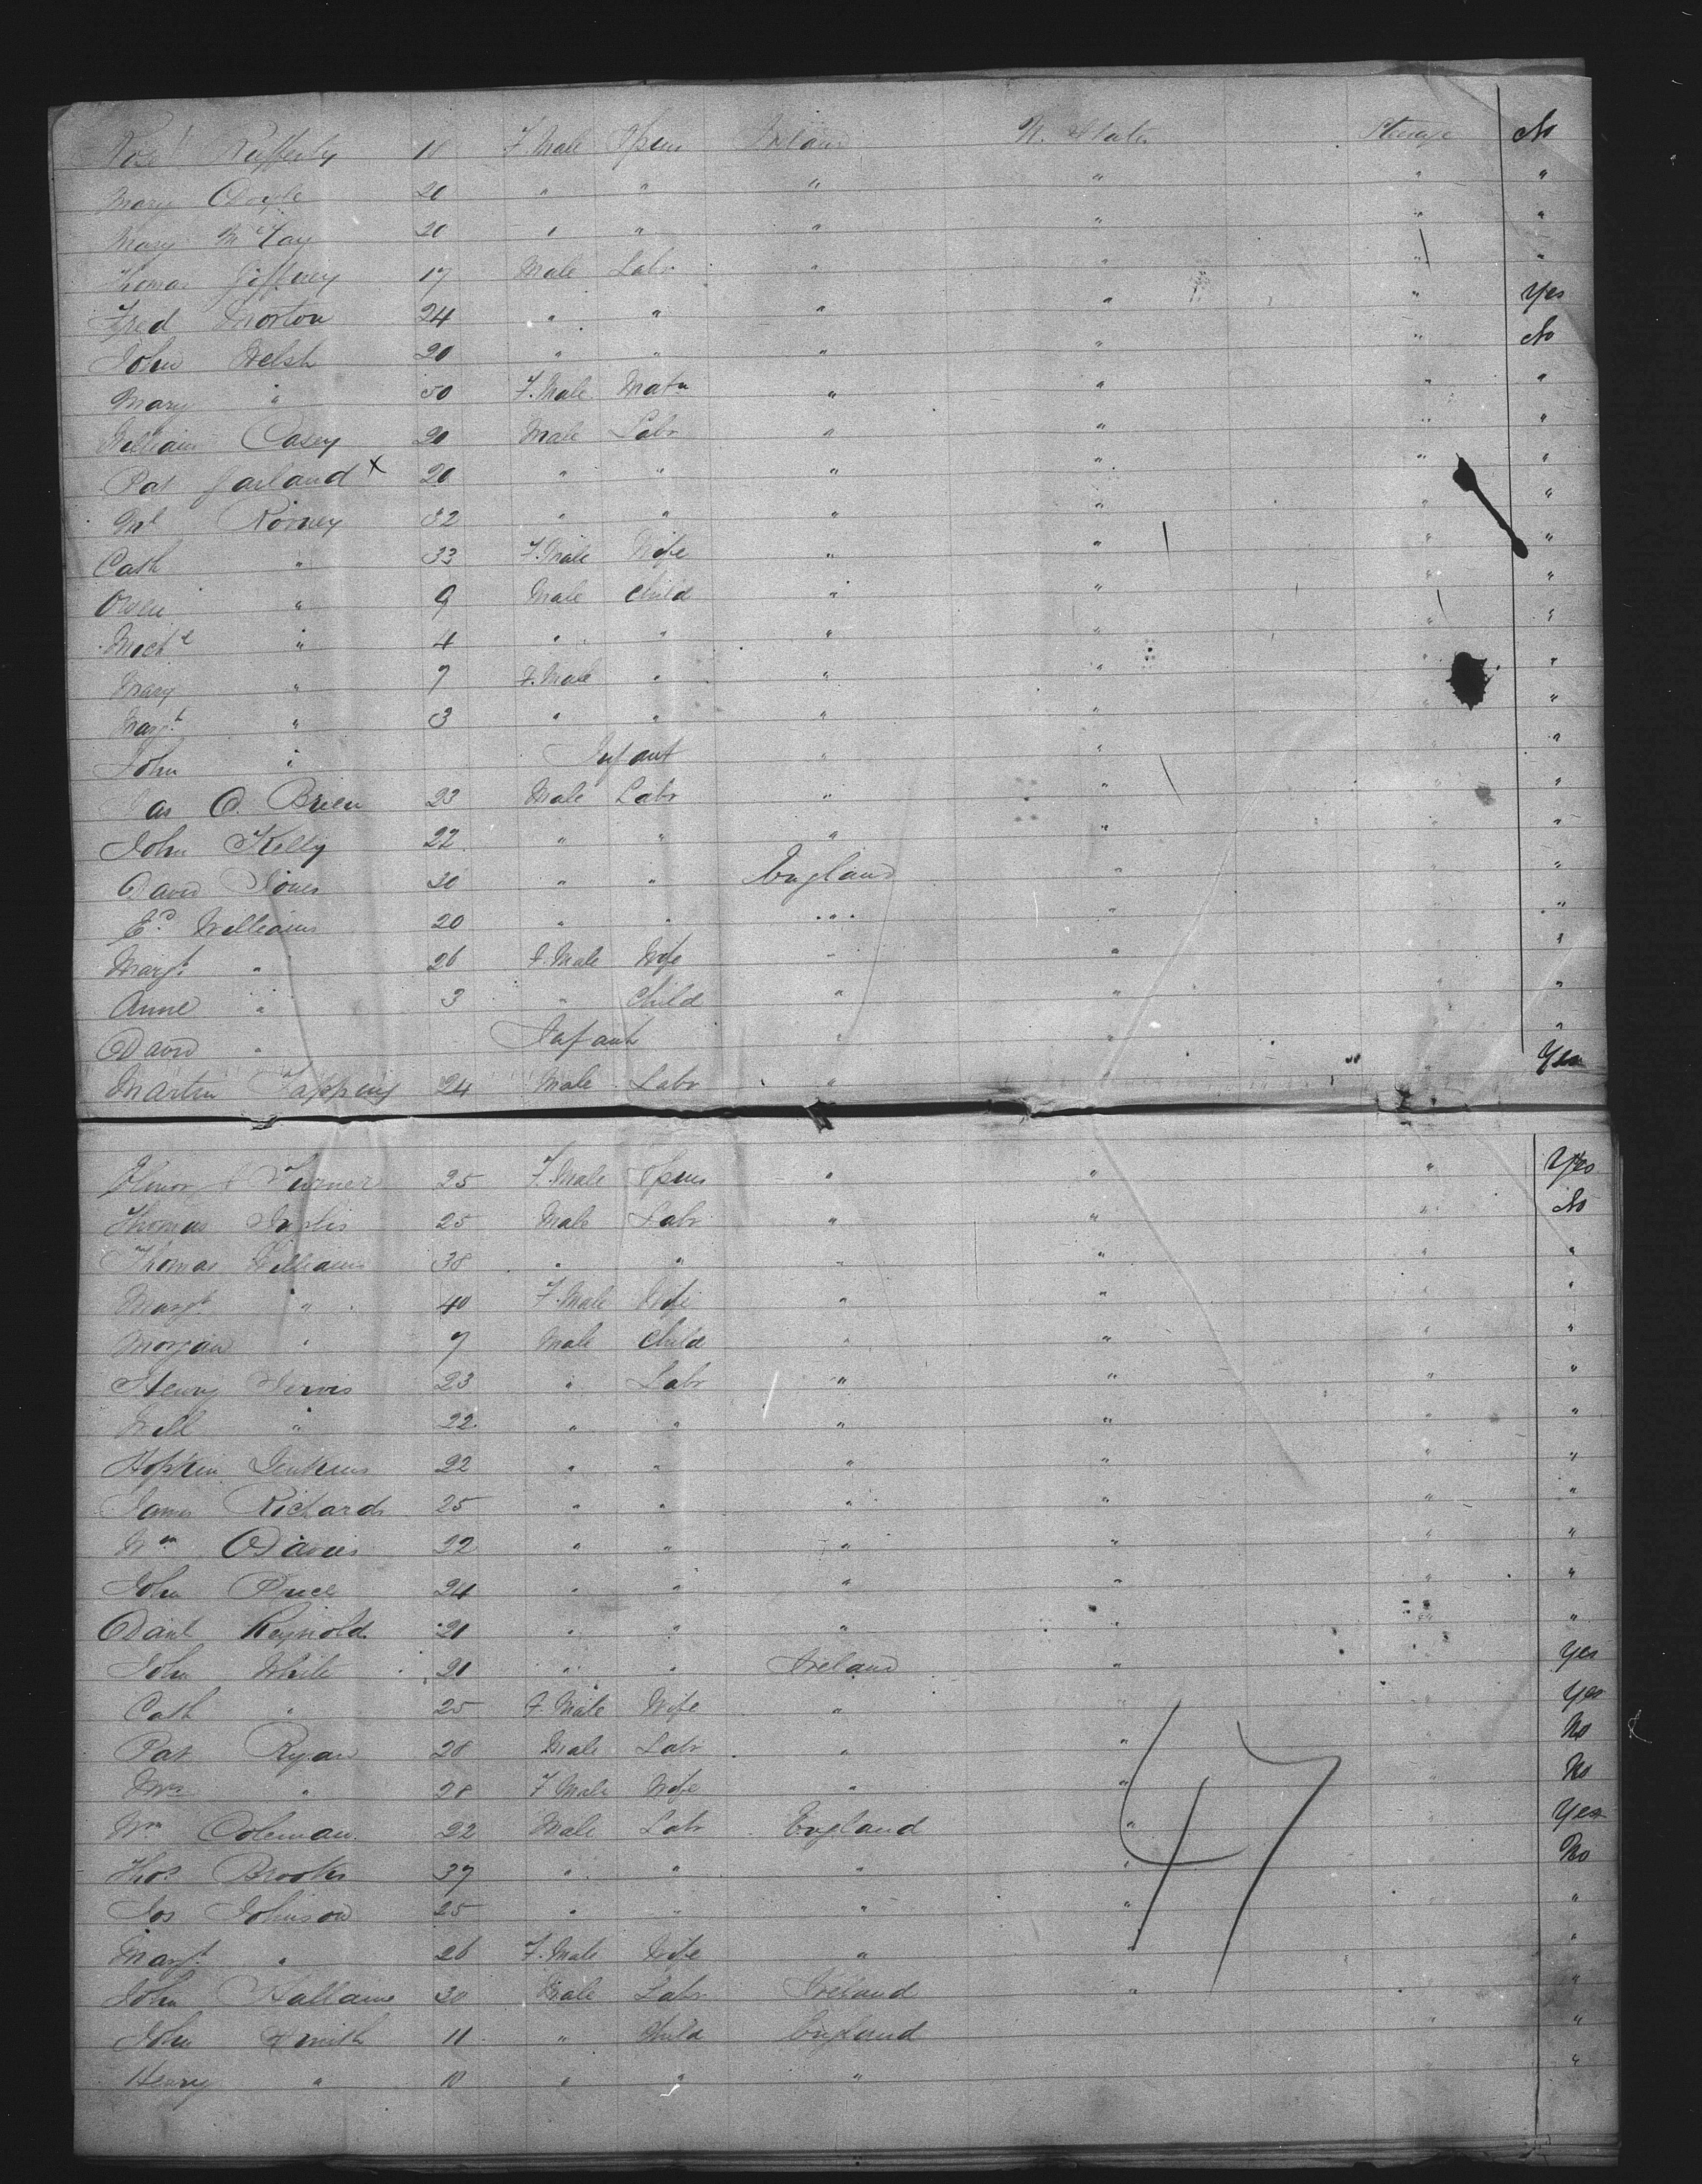 Rose Rafferty 18 F. Male Spins Ireland U. States Steerage No
Mary Doyle 20 " " " " " "
Mary McCay 20 " " " " " "
Thomas Jeffrey 17 Male Labr " " " "
Fred Morton 24 " " " " " Yes
John Welsh 20 " " " " " No
Mary " 50 F. Male Matn " " " "
William Casey 20 Male Labr " " " "
Pat Garland x 20 " " " " " "
Ml Rorney 32 " " " " " "
Cath " 33 F. Male Wife " " " "
Owen " 9 Male Child " " " "
Michl " 4 " " " " " "
Mary " 7 F. Male " " " " "
Margt " 3 " " " " " "
John " Infant " " " "
Jas O. Brien 23 Male Labr " " " "
John Kelly 22 " " " " " "
David Jones 20 " " England " " "
Ed. Williams 20 " " " " " "
Margt " 26 F. Male Wife " " " "
Anne " 3 " Child " " " "
David " Infant " " " "
Martin Tapping 24 Male Labr " " " Yes
Turner 25 F. Male Spins " " " Yes
Thomas 25 Male Labr " " " No
Thomas Williams 38 " " " " " "
Margt " 40 F. Male Wife " " " "
Morgan " 7 Male Child " " " "
Henry 23 " Labr " " " "
Will " 22 " " " " " "
Hopkin Jenkins 22 " " " " " "
James Richards 25 " " " " " "
Wm Davies 22 " " " " " "
John Price 24 " " " " " "
Danl Reynold 21 " " " " " "
John White 21 " " Ireland " " Yes
Cath " 25 F. Male Wife " " " Yes
Pat Ryan 28 Male Labr " " " No
Mrs " 28 F. Male Wife " " " No
Wm Coleman 22 Male Labr England " " Yes
Thos Brooks 37 " " " " " No
Jos Johnson 25 " " " " " "
Margt " 26 F. Male Wife " " " "
John Hallaine 30 Male Labr Ireland " " "
John Smith 11 " Child England " "
Henry " 10 " " " " "
47